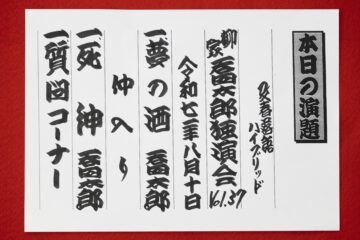 本日の演題
文春落語
ハイブリッド
柳家喬太郎独演会 Vol.37
令和七年八月十日
一 夢の酒 喬太郎
仲入り
一 死神 喬太郎
一 質問コーナー